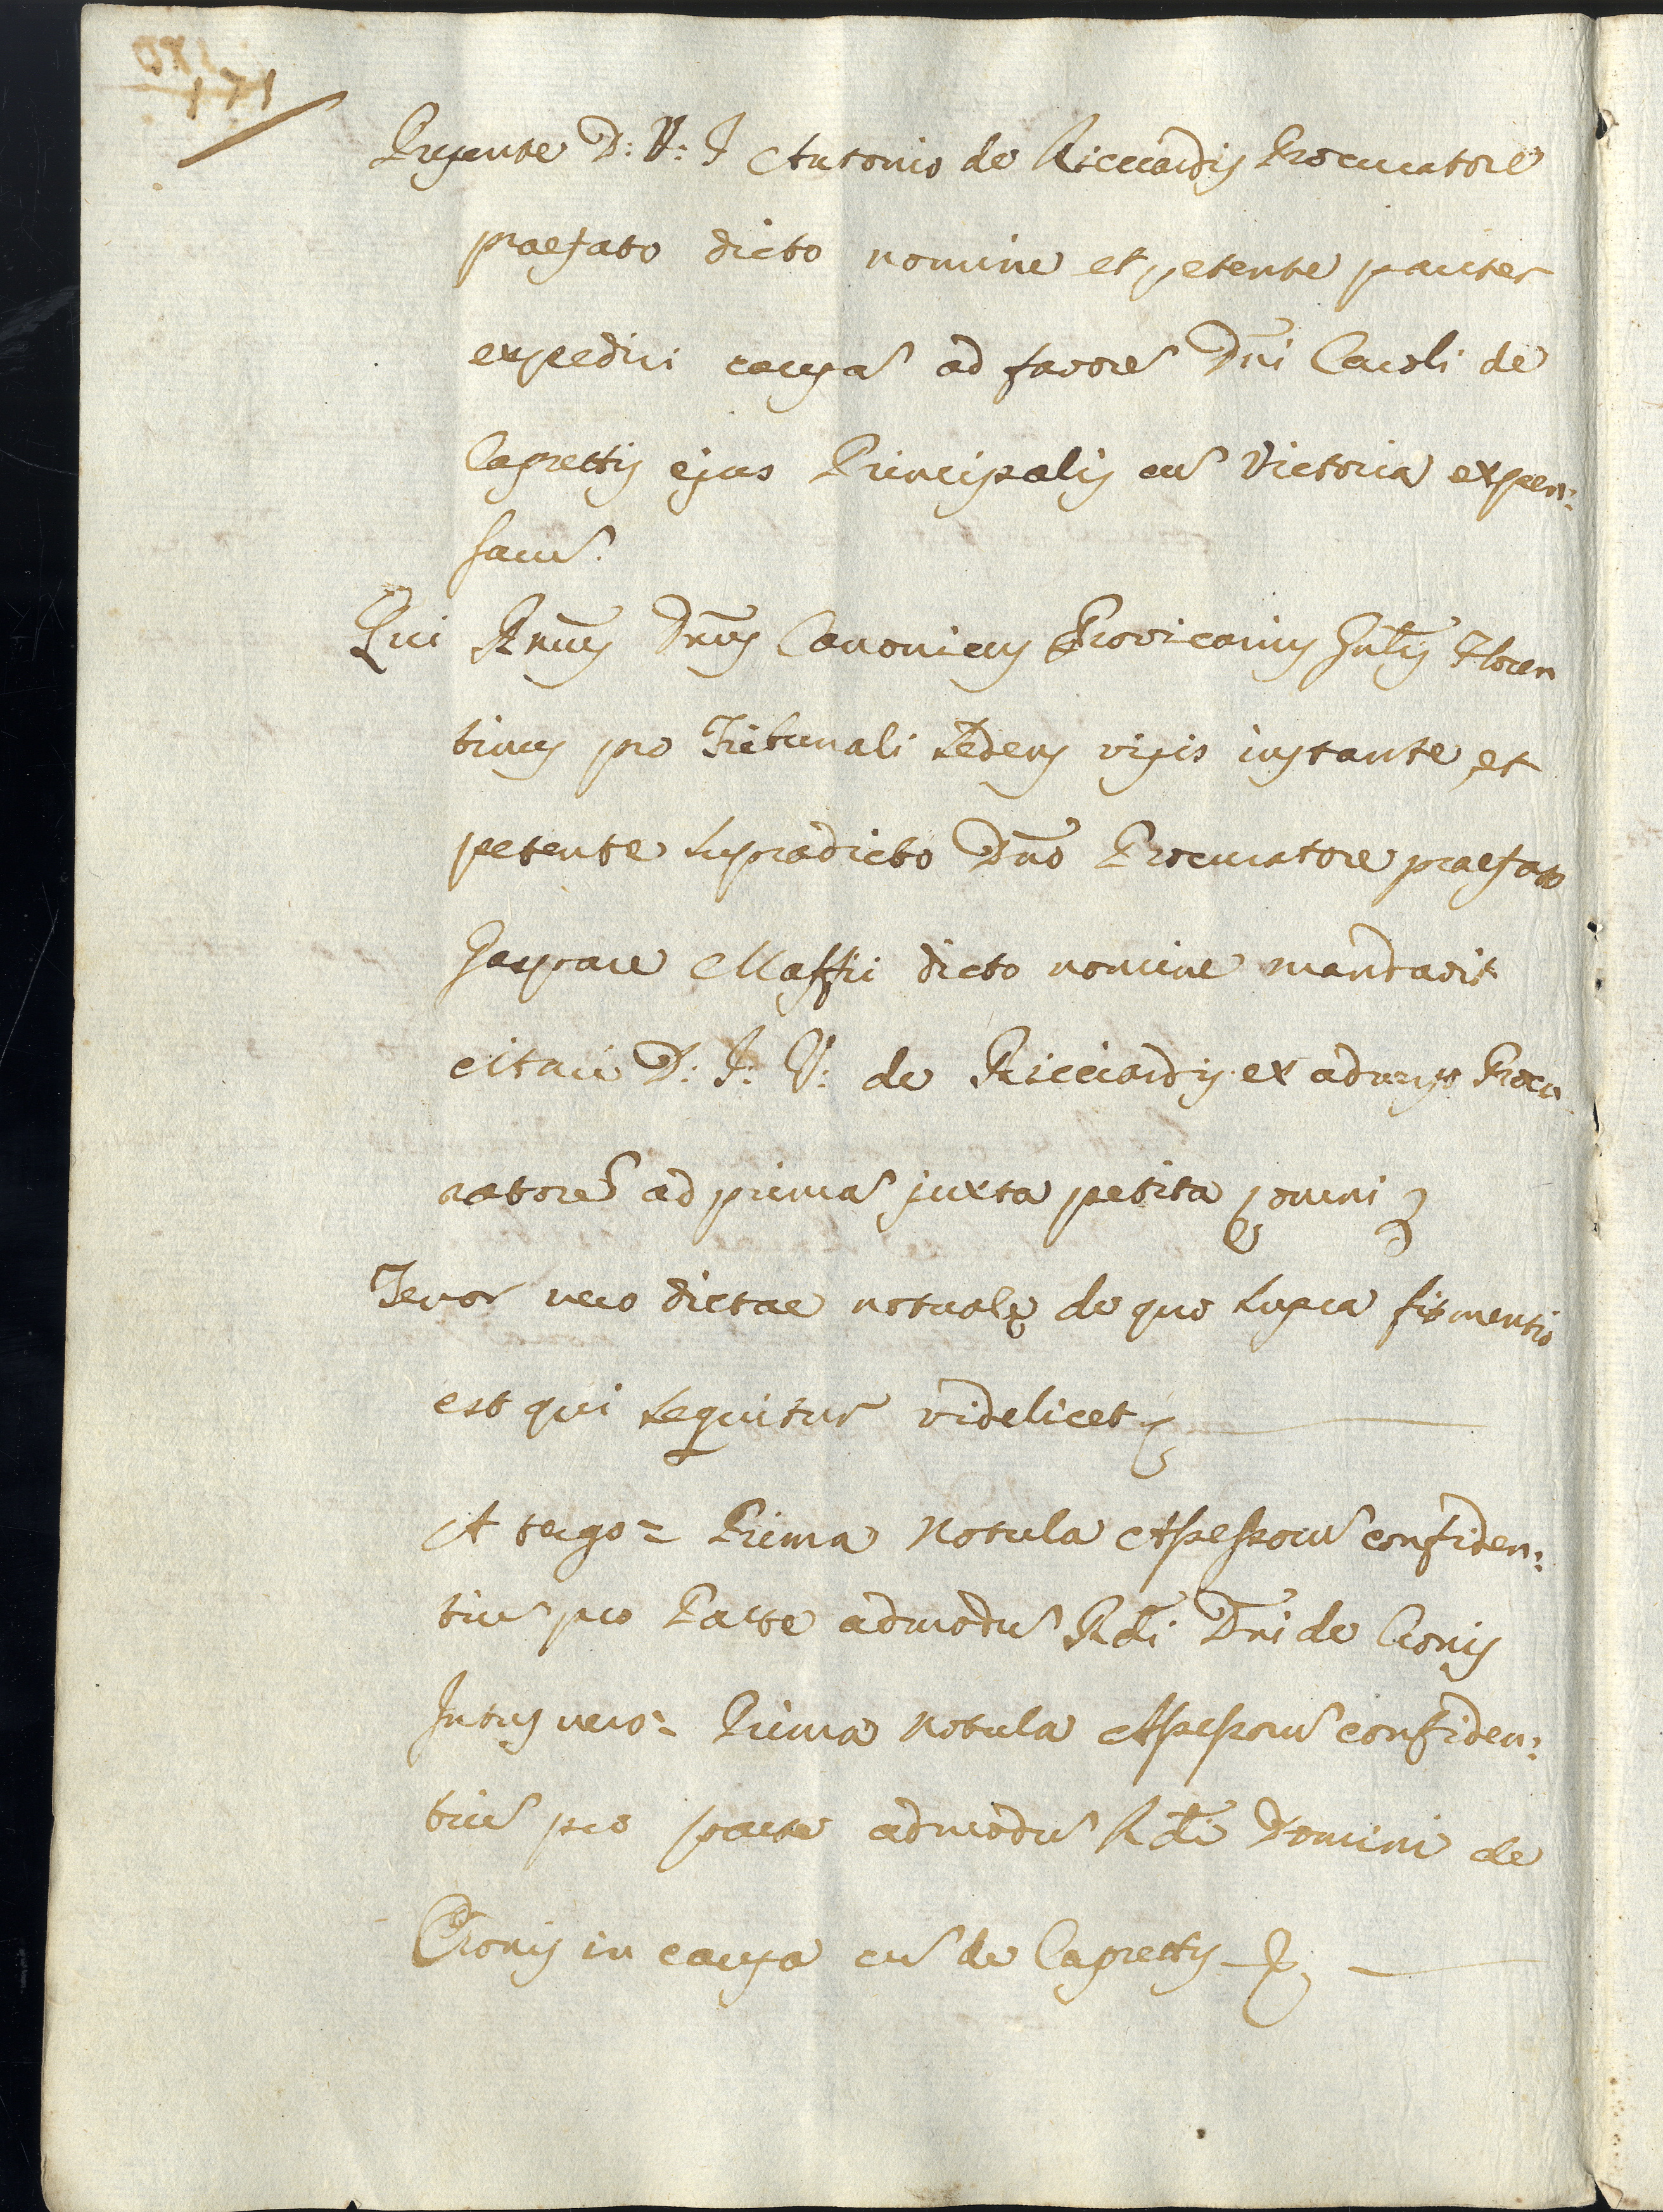 Presente D: V: J Antonio de Ricciardis Procuratore
praefato dicto nomine et petente pariter
expediri causa͂ ad favore͂ Dn̄i Caroli de
Caprettis ejus Principalis cu͂ Victoria expen:
saru͂.
Qui Rm̄us Dn̄us Canonicus Provicarius Gn̄lis Floren
tinus pro Tribunali sedens visis instante et
petente supradicto Dn̄o Procuratore praefato
Gaspare Maffii dicto nomine mandavit
citari D: J: V: de Ricciardis ex adverso Procu
ratore͂ ad prima͂ juxta petita omni
Tenor vero dictae notulae de qua supra fit mentio
est qui sequitur videlicet
A tergo = Prima Notula Assessoru͂ confiden:
tiu͂ pro Parte admodu͂ Rdi Dn̄i de Cionis
Intus vero = Prima Notula Assessoru͂ confiden:
tiu͂ pro parte admodu͂ Rdi Domini de
Cionis in causa cu͂ de Caprettis